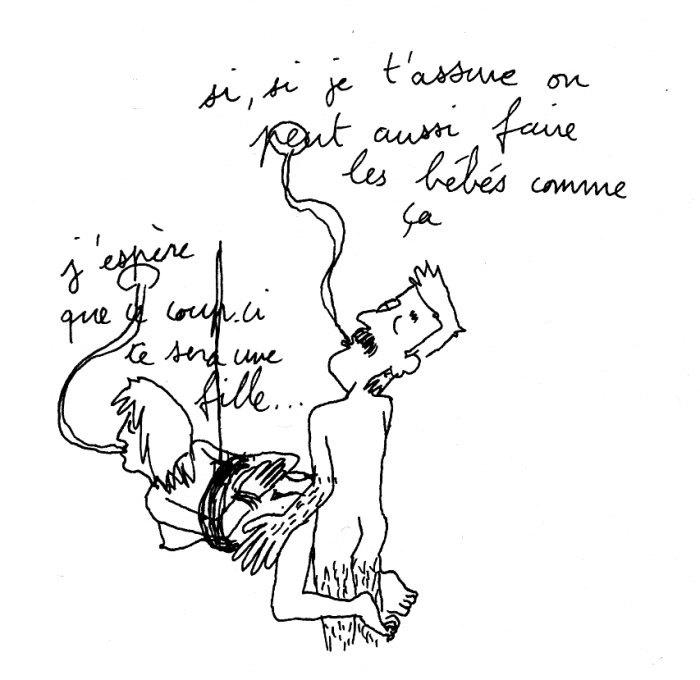 si, si je t'assure on
peut aussi faire
les bébés comme
ça
j'espère
que ce coup-ci
ce sera une
fille...